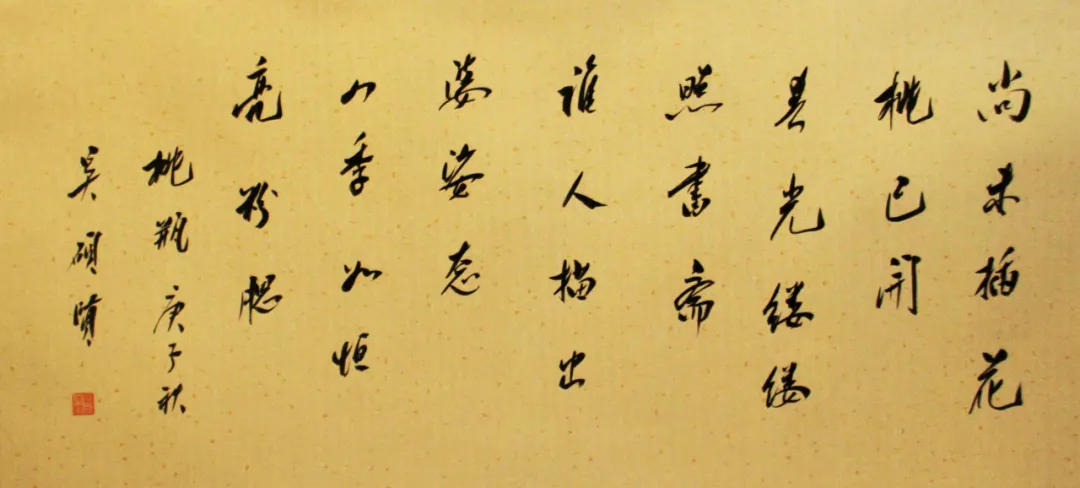 尚未插花
桃已開
春光缕缕
照書斋
谁人描出
婆娑态
四季如恒
亮粉腮
桃瓶 庚子秋
吴碩賢